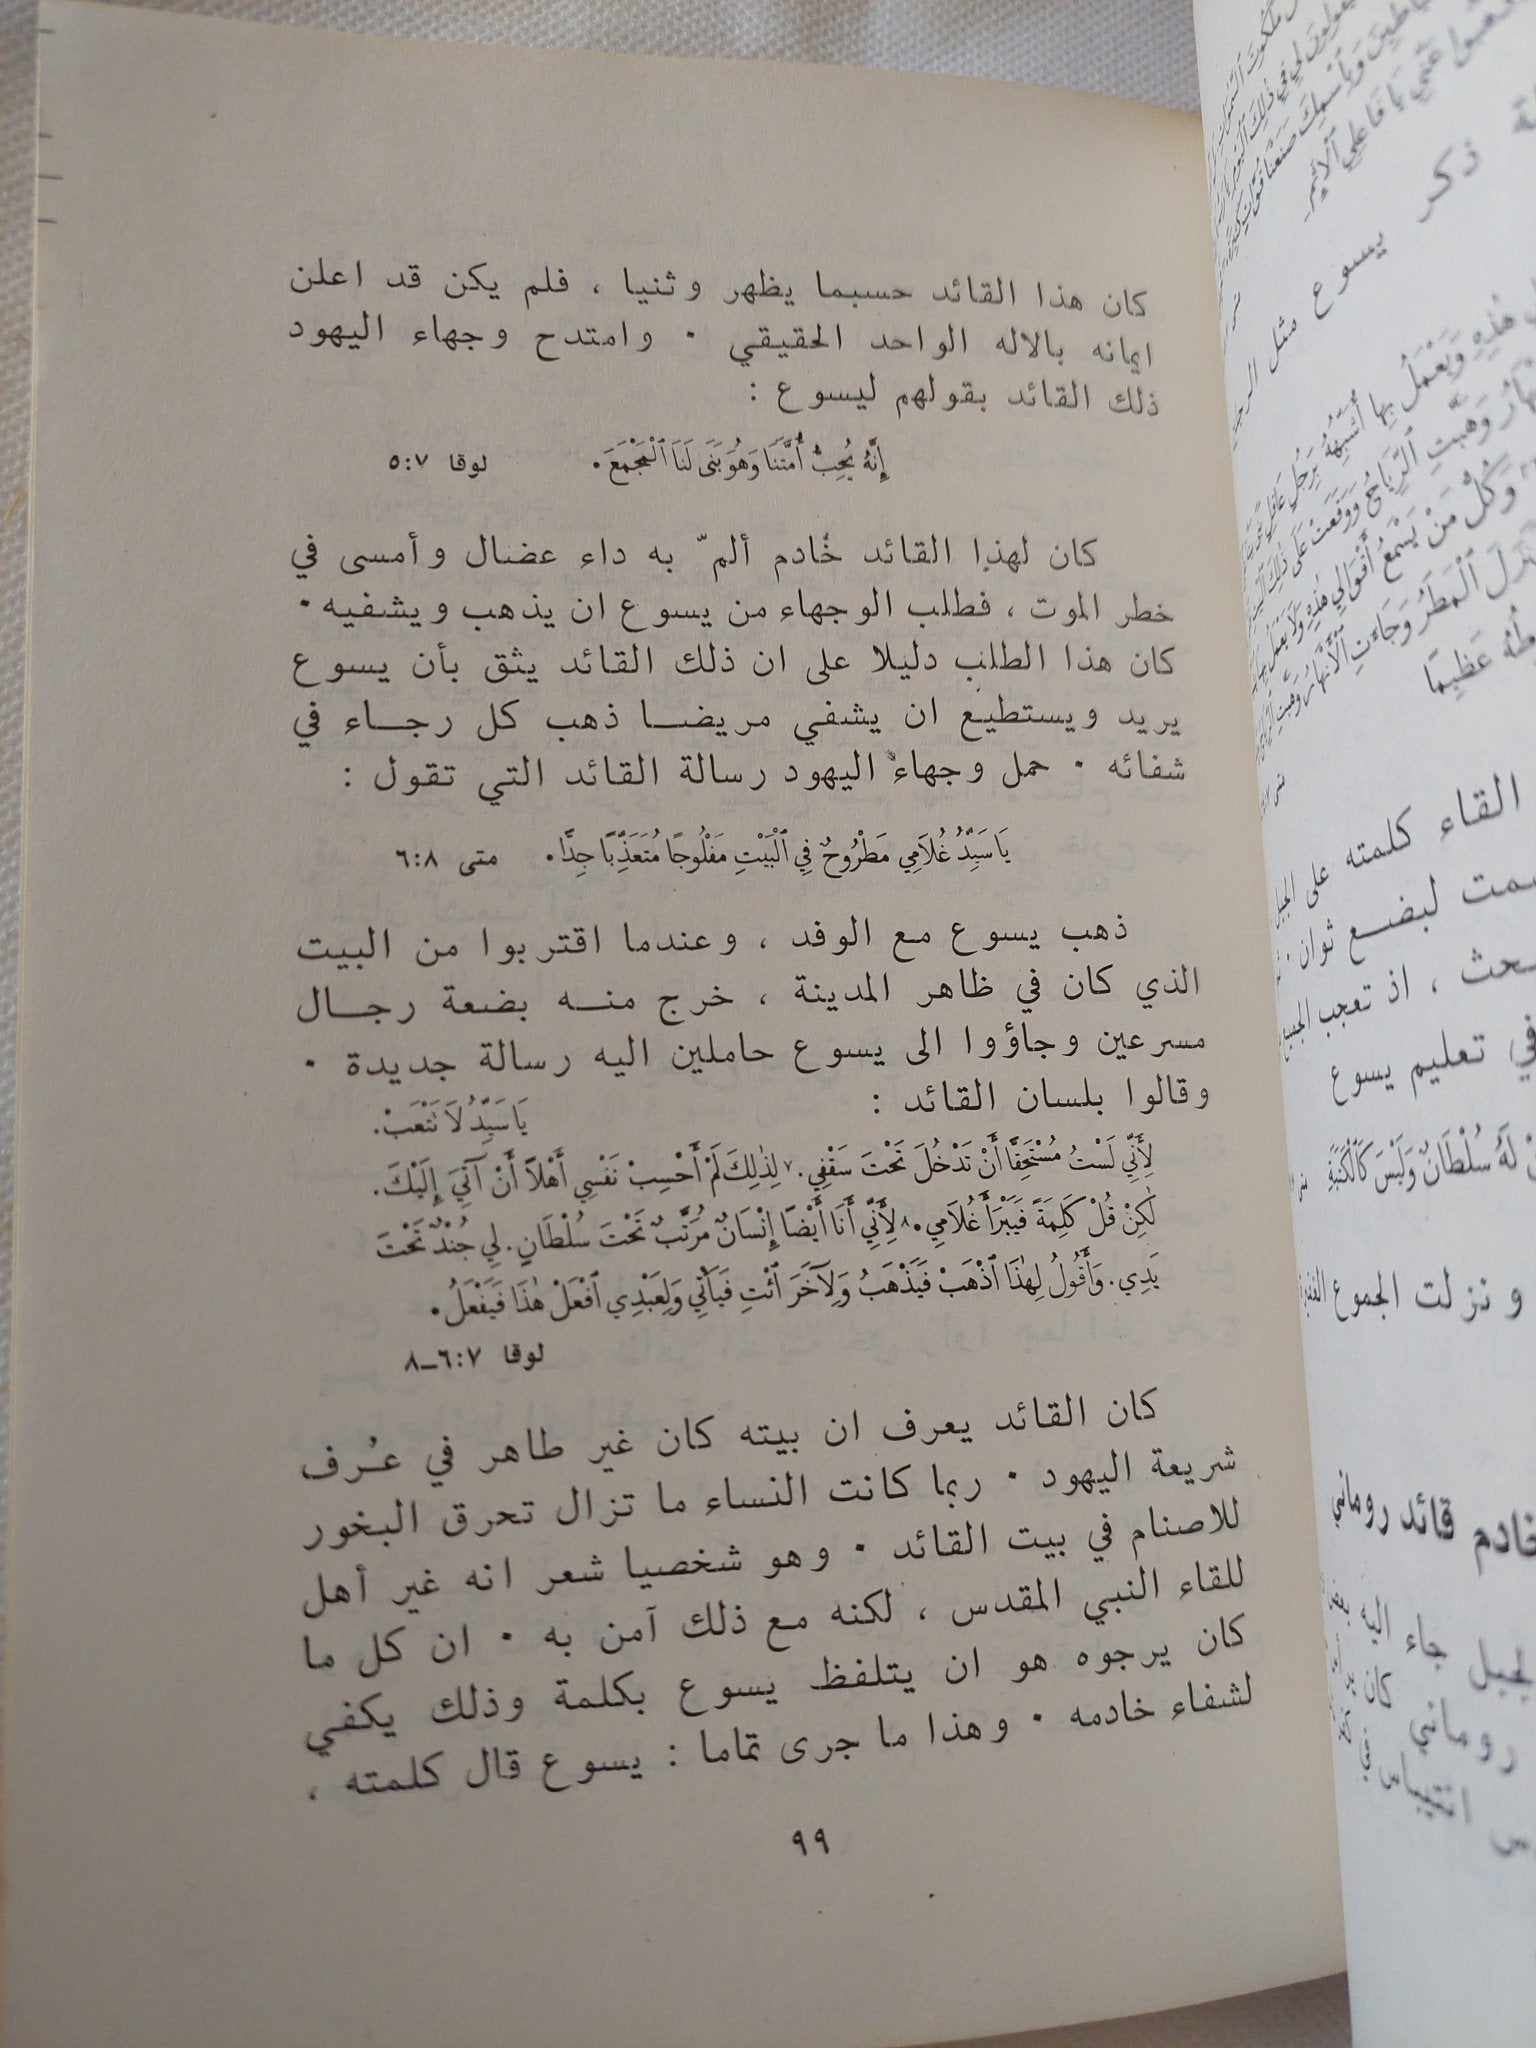 كان هذا القائد حسبما يظهر وثنيا ، فلم يكن قد اعلن
ايمانه بالاله الواحد الحقيقي . وامتدح وجهاء اليهود
ذلك القائد بقولهم ليسوع :
إِنَّهُ يُحِبُّ أُمَّتَنَا وَهُوَ بَنَى لَنَا ٱلْمَجْمَعَ . لوقا ٥:٧
كان لهذا القائد خادم ألمّ به داء عضال وأمسى في
خطر الموت ، فطلب الوجهاء من يسوع ان يذهب ويشفيه .
كان هذا الطلب دليلا على ان ذلك القائد يثق بأن يسوع
يريد ويستطيع ان يشفي مريضا ذهب كل رجاء في
شفائه . حمل وجهاء اليهود رسالة القائد التي تقول :
يَا سَيِّدُ غُلَامِي مَطْرُوحٌ فِي ٱلْبَيْتِ مَفْلُوجًا مُتَعَذِّبًا جِدًّا . متى ٦:٨
ذهب يسوع مع الوفد ، وعندما اقتربوا من البيت
الذي كان في ظاهر المدينة ، خرج منه بضعة رجال
مسرعين وجاؤوا الى يسوع حاملين اليه رسالة جديدة .
وقالوا بلسان القائد :
يَا سَيِّدُ لَا تَتْعَبْ .
لِأَنِّي لَسْتُ مُسْتَحِقًّا أَنْ تَدْخُلَ تَحْتَ سَقْفِي . ٧ لِذٰلِكَ لَمْ أَحْسِبْ نَفْسِي أَهْلًا أَنْ آتِيَ إِلَيْكَ .
لٰكِنْ قُلْ كَلِمَةً فَيَبْرَأَ غُلَامِي . ٨ لِأَنِّي أَنَا أَيْضًا إِنْسَانٌ مُرَتَّبٌ تَحْتَ سُلْطَانٍ . لِي جُنْدٌ تَحْتَ
يَدِي . وَأَقُولُ لِهٰذَا ٱذْهَبْ فَيَذْهَبُ وَلِآخَرَ ٱئْتِ فَيَأْتِي وَلِعَبْدِي ٱفْعَلْ هٰذَا فَيَفْعَلُ .
لوقا ٦:٧-٨
كان القائد يعرف ان بيته كان غير طاهر في عُرف
شريعة اليهود . ربما كانت النساء ما تزال تحرق البخور
للاصنام في بيت القائد . وهو شخصيا شعر انه غير أهل
للقاء النبي المقدس ، لكنه مع ذلك آمن به . ان كل ما
كان يرجوه هو ان يتلفظ يسوع بكلمة وذلك يكفي
لشفاء خادمه . وهذا ما جرى تماما : يسوع قال كلمته ،
٩٩
ذكر يسوع مثل
القاء كلمته على
لبضع ثوان .
اذ تعجب
في تعليم يسوع
لَهُ سُلْطَانٌ وَلَيْسَ كَٱلْكَتَبَةِ
ونزلت الجموع
خادم قائد روماني
جاء اليه
روماني كان